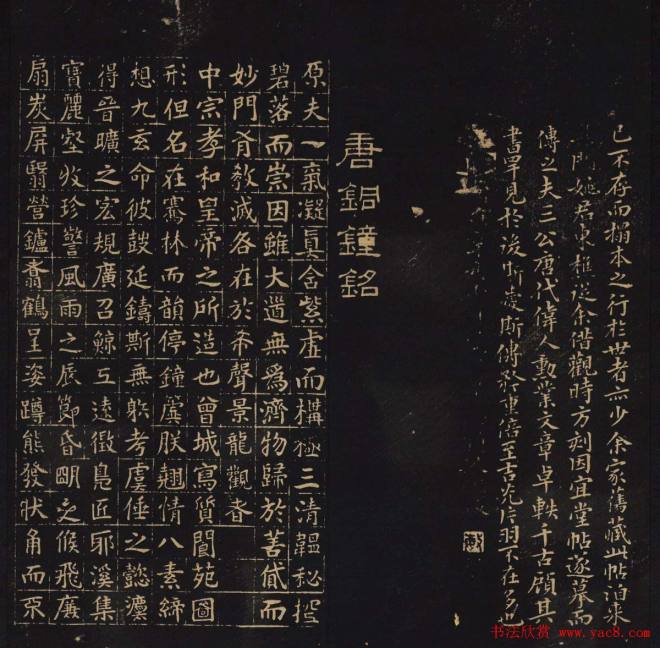 已不存而搨本之行於世者亦少余家舊藏此帖泊來
門姚君東樵從余借觀時方刻因宜堂帖遂摹而
傳之夫三公唐代偉人勳業文章卓軼千古顧其
書罕見於後斯傳於重倍至吉光片羽不在多也
唐銅鐘銘
原夫一氣凝真含紫虛而構極三清韞秘控
碧落而崇因雖大道無爲濟物歸於善貸而
妙門有教滅各在於希聲景龍觀者
中宗孝和皇帝之所造也曾城寫質閬苑圖
形但名在騫林而韻停鐘簴朕翹情八素締
想九玄命彼鼓延鑄斯無躬考虞倕之懿濩
得晉曠之宏規廣召鯨工遠徵鳧匠耶溪集
寶麗壑收珍警風雨之辰節昏明之候飛廉
扇炭屏翳營鑪翥鶴呈姿蹲熊發狀角而不
书法欣赏 www.yac8.com